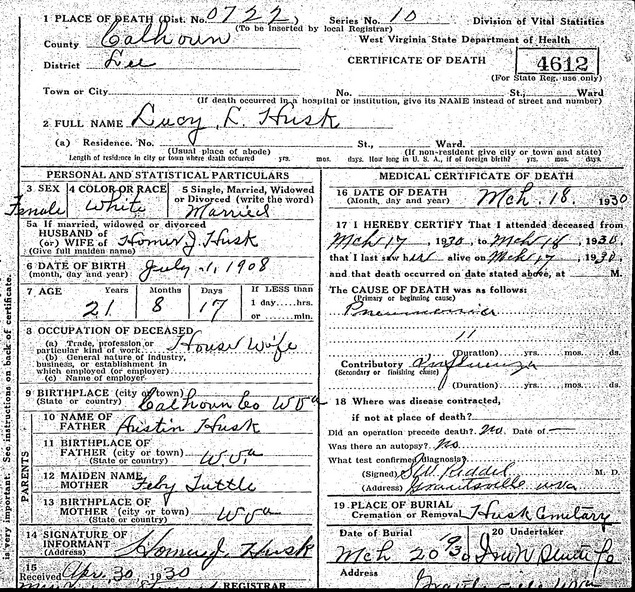 1 PLACE OF DEATH (Dist. No. 0722 Series No. 10 Division of Vital Statistics
(To be inserted by local Registrar)
County Calhoun West Virginia State Department of Health
District Lee CERTIFICATE OF DEATH 4612
(For State Reg. use only)
Town or City No. St., Ward
(If death occurred in a hospital or institution, give its NAME instead of street and number)
2 FULL NAME Lucy L. Husk
(a) Residence. No. St., Ward.
(Usual place of abode) (If non-resident give city or town and state)
Length of residence in city or town where death occurred yrs. mos. days. How long in U. S. A., if of foreign birth? yrs. mos. days.
PERSONAL AND STATISTICAL PARTICULARS
3 SEX 4 COLOR OR RACE 5 Single, Married, Widowed
or Divorced (write the word)
Female White Married
5a If married, widowed or divorced
HUSBAND of
(or) WIFE of Homer J. Husk
(Give full maiden name)
6 DATE OF BIRTH July 1, 1908
(month, day and year)
7 AGE Years Months Days If LESS than
1 day....hrs.
21 8 17 or ...... min.
8 OCCUPATION OF DECEASED
(a) Trade, profession or
particular kind of work House Wife
(b) General nature of industry,
business, or establishment in
which employed (or employer)
(c) Name of employer
9 BIRTHPLACE (city or town)
(State or country) Calhoun Co W Va
PARENTS
10 NAME OF
FATHER Austin Husk
11 BIRTHPLACE OF
FATHER (city or town) W Va
(State or country)
12 MAIDEN NAME
MOTHER Feby Tuttle
13 BIRTHPLACE OF
MOTHER (city or town) W Va
(State or country)
14 SIGNATURE OF
INFORMANT Homer J. Husk
(Address)
15
Received Apr. 30, 1930
REGISTRAR
MEDICAL CERTIFICATE OF DEATH
16 DATE OF DEATH Mch. 18, 1930
(Month, day and year)
17 I HEREBY CERTIFY That I attended deceased from
Mch 17, 1930, to Mch 18, 1930,
that I last saw her alive on Mch 17, 1930,
and that death occurred on date stated above, at M.
The CAUSE OF DEATH was as follows:
(Primary or beginning cause)
Pneumonia
11
(Duration) yrs. mos. ds.
Contributory Influenza
(Secondary or finishing cause)
(Duration) yrs. mos. ds.
18 Where was disease contracted,
if not at place of death?
Did an operation precede death? No. Date of —
Was there an autopsy? No
What test confirmed diagnosis?
(Signed) M. D.
(Address) Grantsville W Va
19 PLACE OF BURIAL
Cremation or Removal Husk Cemetary
Date of Burial 20 Undertaker
Mch 20 930
Address
is very important. See instructions on back of certificate.